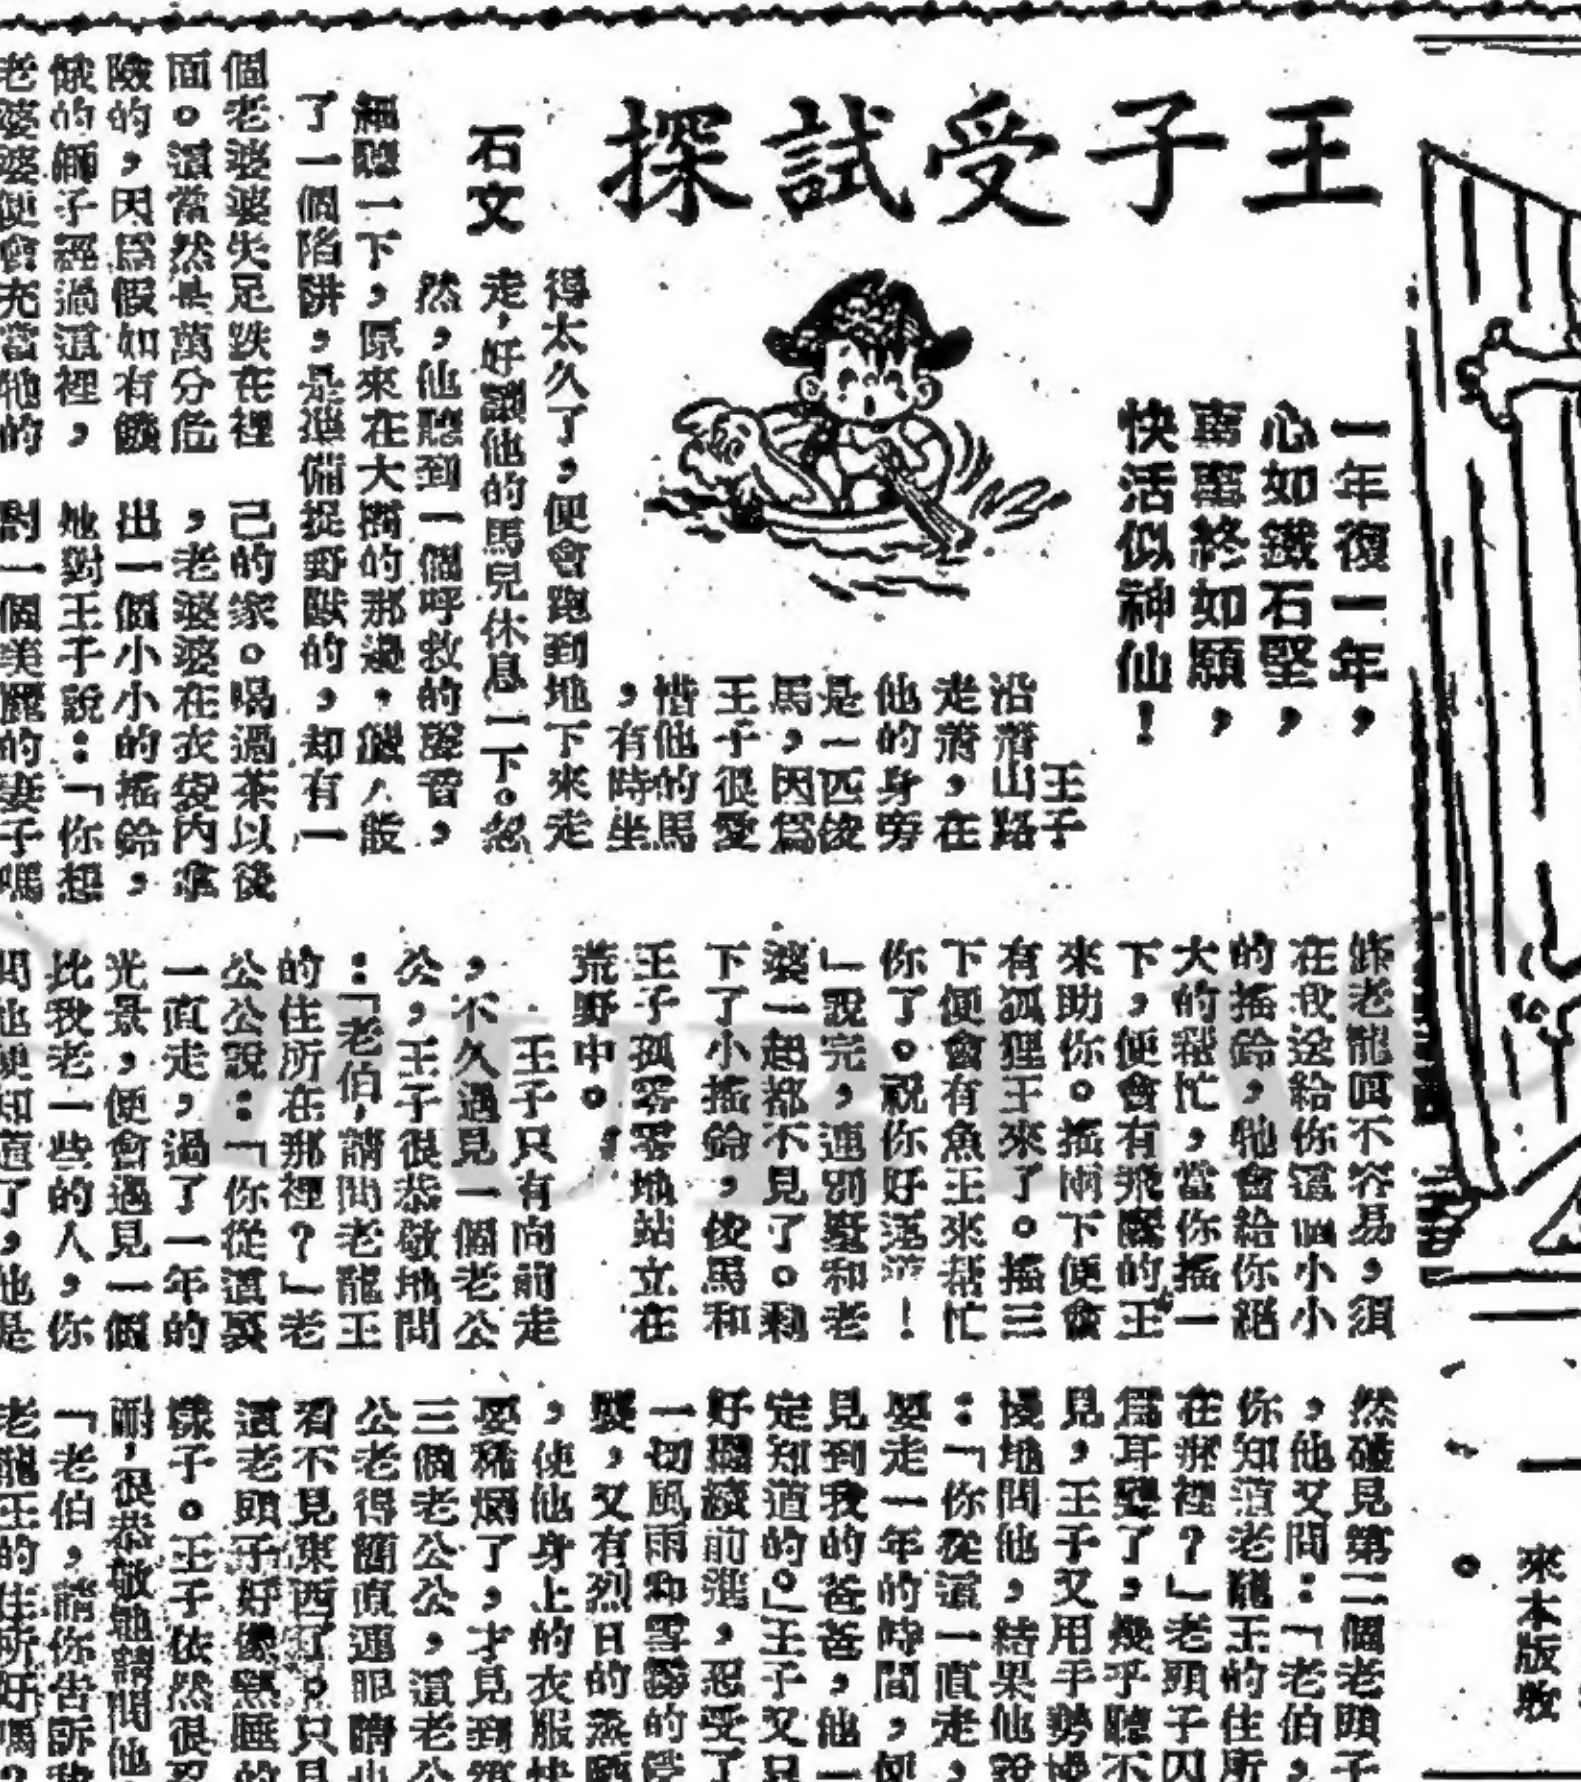 王子受試探
石文
一年復一年，
心如鐵石堅，
喜喜終如願，
快活似神仙！
王子
沿着山路
走着，在
他的身旁
是一匹俊
馬，因為
王子很愛
惜他的馬
，有時坐
得太久了，便會跑到地下來走
走，好讓他的馬兒休息一下。忽
然，他聽到一個呼救的聲音，
細聽一下，原來在大樹的那邊，
了一個陷阱，是準備捉野獸的，却有一
個老婆婆失足跌在裡
面。這當然是萬分危
險的，因為假如有饑
餓的獅子經過這裡，
老婆婆便會充當牠的
己的家。喝過茶以後
，老婆婆在衣袋內拿
出一個小小的搖鈴，
她對王子說：「你想
對一個美麗的妻子嗎
老龍王不容易，須
在我送給你這個小小
的搖鈴，牠會給你絕
大的幫忙，當你搖一
下，便會有飛鷹的王
來助你。搖兩下便會
有狐狸王來了。搖三
下便會有魚王來幫忙
你了。祝你好運！
」說完，連別墅和老
婆一起都不見了。剩
下了小搖鈴，俊馬和
王子孤零零地站立在
荒野中。
王子只有向前走
，不久遇見一個老公
公，王子很恭敬地問
：「老伯，請問老龍王
的住所在那裡？」老
公公說：「你從這裏
一直走，過了一年的
光景，便會遇見一個
比我老一些的人，你
問他便知道了，他是
然碰見第二個老頭子
，他又問：「老伯，
你知道老龍王的住所
在那裡？」老頭子因
為耳聾了，幾乎聽不
見，王子又用手勢慢
慢地問他，結果他說
：「你從這一直走，
要走一年的時間，便
見到我的爸爸，他一
定知道的。」王子又只
好繼續前進，忍受了
一切風雨和雪霧的
襲，又有烈日的蒸
，使他身上的衣服快
要稀爛了，才見到第
三個老公公，這老公
公老得簡直連眼睛也
看不見東西了，只見
這老頭子好像熟睡的
樣子。王子依然很忍
耐，很恭敬地請問他
「老伯，請你告訴我
老龍王的住所好嗎？
來本版收